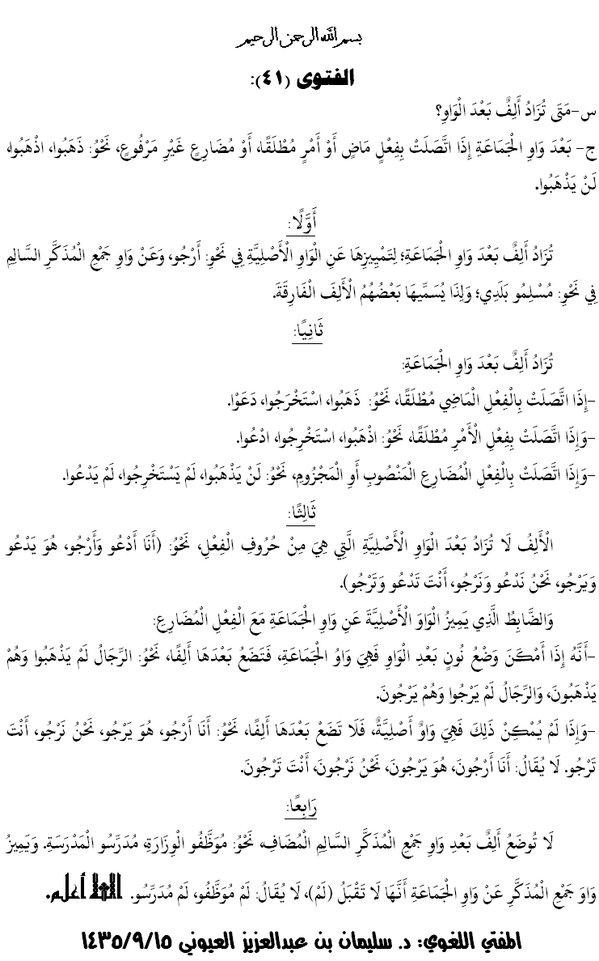 بسم الله الرحمن الرحيم
الفتوى (٤١):
س-مَتَى تُزَادُ أَلِفٌ بَعْدَ الْوَاوِ؟
ج- بَعْدَ وَاوِ الْجَمَاعَةِ إِذَا اتَّصَلَتْ بِفِعْلٍ مَاضٍ أَوْ أَمْرٍ مُطْلَقًا، أَوْ مُضَارِعٍ غَيْرِ مَرْفُوعٍ، نَحْوُ: ذَهَبُوا، اذْهَبُوا،
لَنْ يَذْهَبُوا.
أَوَّلًا:
تُزَادُ أَلِفٌ بَعْدَ وَاوِ الْجَمَاعَةِ؛ لِتَمْيِيزِهَا عَنِ الْوَاوِ الْأَصْلِيَّةِ فِي نَحْوِ: أَرْجُو، وَعَنْ وَاوِ جَمْعِ الْمُذَكَّرِ السَّالِمِ
فِي نَحْوِ: مُسْلِمُو بَلَدِي؛ وَلِذَا يُسَمِّيهَا بَعْضُهُمُ الْأَلِفَ الْفَارِقَةَ.
ثَانِيًا:
تُزَادُ أَلِفٌ بَعْدَ وَاوِ الْجَمَاعَةِ:
-إِذَا اتَّصَلَتْ بِالْفِعْلِ الْمَاضِي مُطْلَقًا، نَحْوُ: ذَهَبُوا، اسْتَخْرَجُوا، دَعَوْا.
-وَإِذَا اتَّصَلَتْ بِفِعْلِ الْأَمْرِ مُطْلَقًا، نَحْوُ: اذْهَبُوا، اسْتَخْرِجُوا، ادْعُوا.
-وَإِذَا اتَّصَلَتْ بِالْفِعْلِ الْمُضَارِعِ الْمَنْصُوبِ أَوِ الْمَجْزُومِ، نَحْوُ: لَنْ يَذْهَبُوا، لَمْ يَسْتَخْرِجُوا، لَمْ يَدْعُوا.
ثَالِثًا:
الْأَلِفُ لَا تُزَادُ بَعْدَ الْوَاوِ الْأَصْلِيَّةِ الَّتِي هِيَ مِنْ حُرُوفِ الْفِعْلِ، نَحْوُ: (أَنَا أَدْعُو وَأَرْجُو، هُوَ يَدْعُو
وَيَرْجُو، نَحْنُ نَدْعُو وَنَرْجُو، أَنْتَ تَدْعُو وَتَرْجُو).
وَالضَّابِطُ الَّذِي يَمِيزُ الْوَاوَ الْأَصْلِيَّةَ عَنِ وَاوِ الْجَمَاعَةِ مَعَ الْفِعْلِ الْمُضَارِعِ:
-أَنَّهُ إِذَا أَمْكَنَ وَضْعُ نُونٍ بَعْدِ الْوَاوِ فَهِيَ وَاوُ الْجَمَاعَةِ، فَتَضَعُ بَعْدَهَا أَلِفًا، نَحْوُ: الرِّجَالُ لَمْ يَذْهَبُوا وَهُمْ
يَذْهَبُونَ، وَالرِّجَالُ لَمْ يَرْجُوا وَهُمْ يَرْجُونَ.
-وَإِذَا لَمْ يُمْكِنْ ذَلِكَ فَهِيَ وَاوٌ أَصْلِيَّةٌ، فَلَا تَضَعْ بَعْدَهَا أَلِفًا، نَحْوُ: أَنَا أَرْجُو، هُوَ يَرْجُو، نَحْنُ نَرْجُو، أَنْتَ
تَرْجُو. لَا يُقَالُ: أَنَا أَرْجُونَ، هُوَ يَرْجُونَ، نَحْنُ نَرْجُونَ، أَنْتَ تَرْجُونَ.
رَابِعًا:
لَا تُوضَعُ أَلِفٌ بَعْدِ وَاوِ جَمْعِ الْمُذَكَّرِ السَّالِمِ الْمُضَافِ، نَحْوُ: مُوَظَّفُو الْوِزَارَةِ، مُدَرِّسُو الْمَدْرَسَةِ. وَيَمِيزُ
وَاوَ جَمْعِ الْمُذَكَّرِ عَنْ وَاوِ الْجَمَاعَةِ أَنَّهَا لَا تَقْبَلُ (لَمْ)، لَا يُقَالُ: لَمْ مُوَظَّفُو، لَمْ مُدَرِّسُو. الله أعلم.
المفتي اللغوي: د. سليمان بن عبدالعزيز العيوني ١٤٣٥/٩/١٥